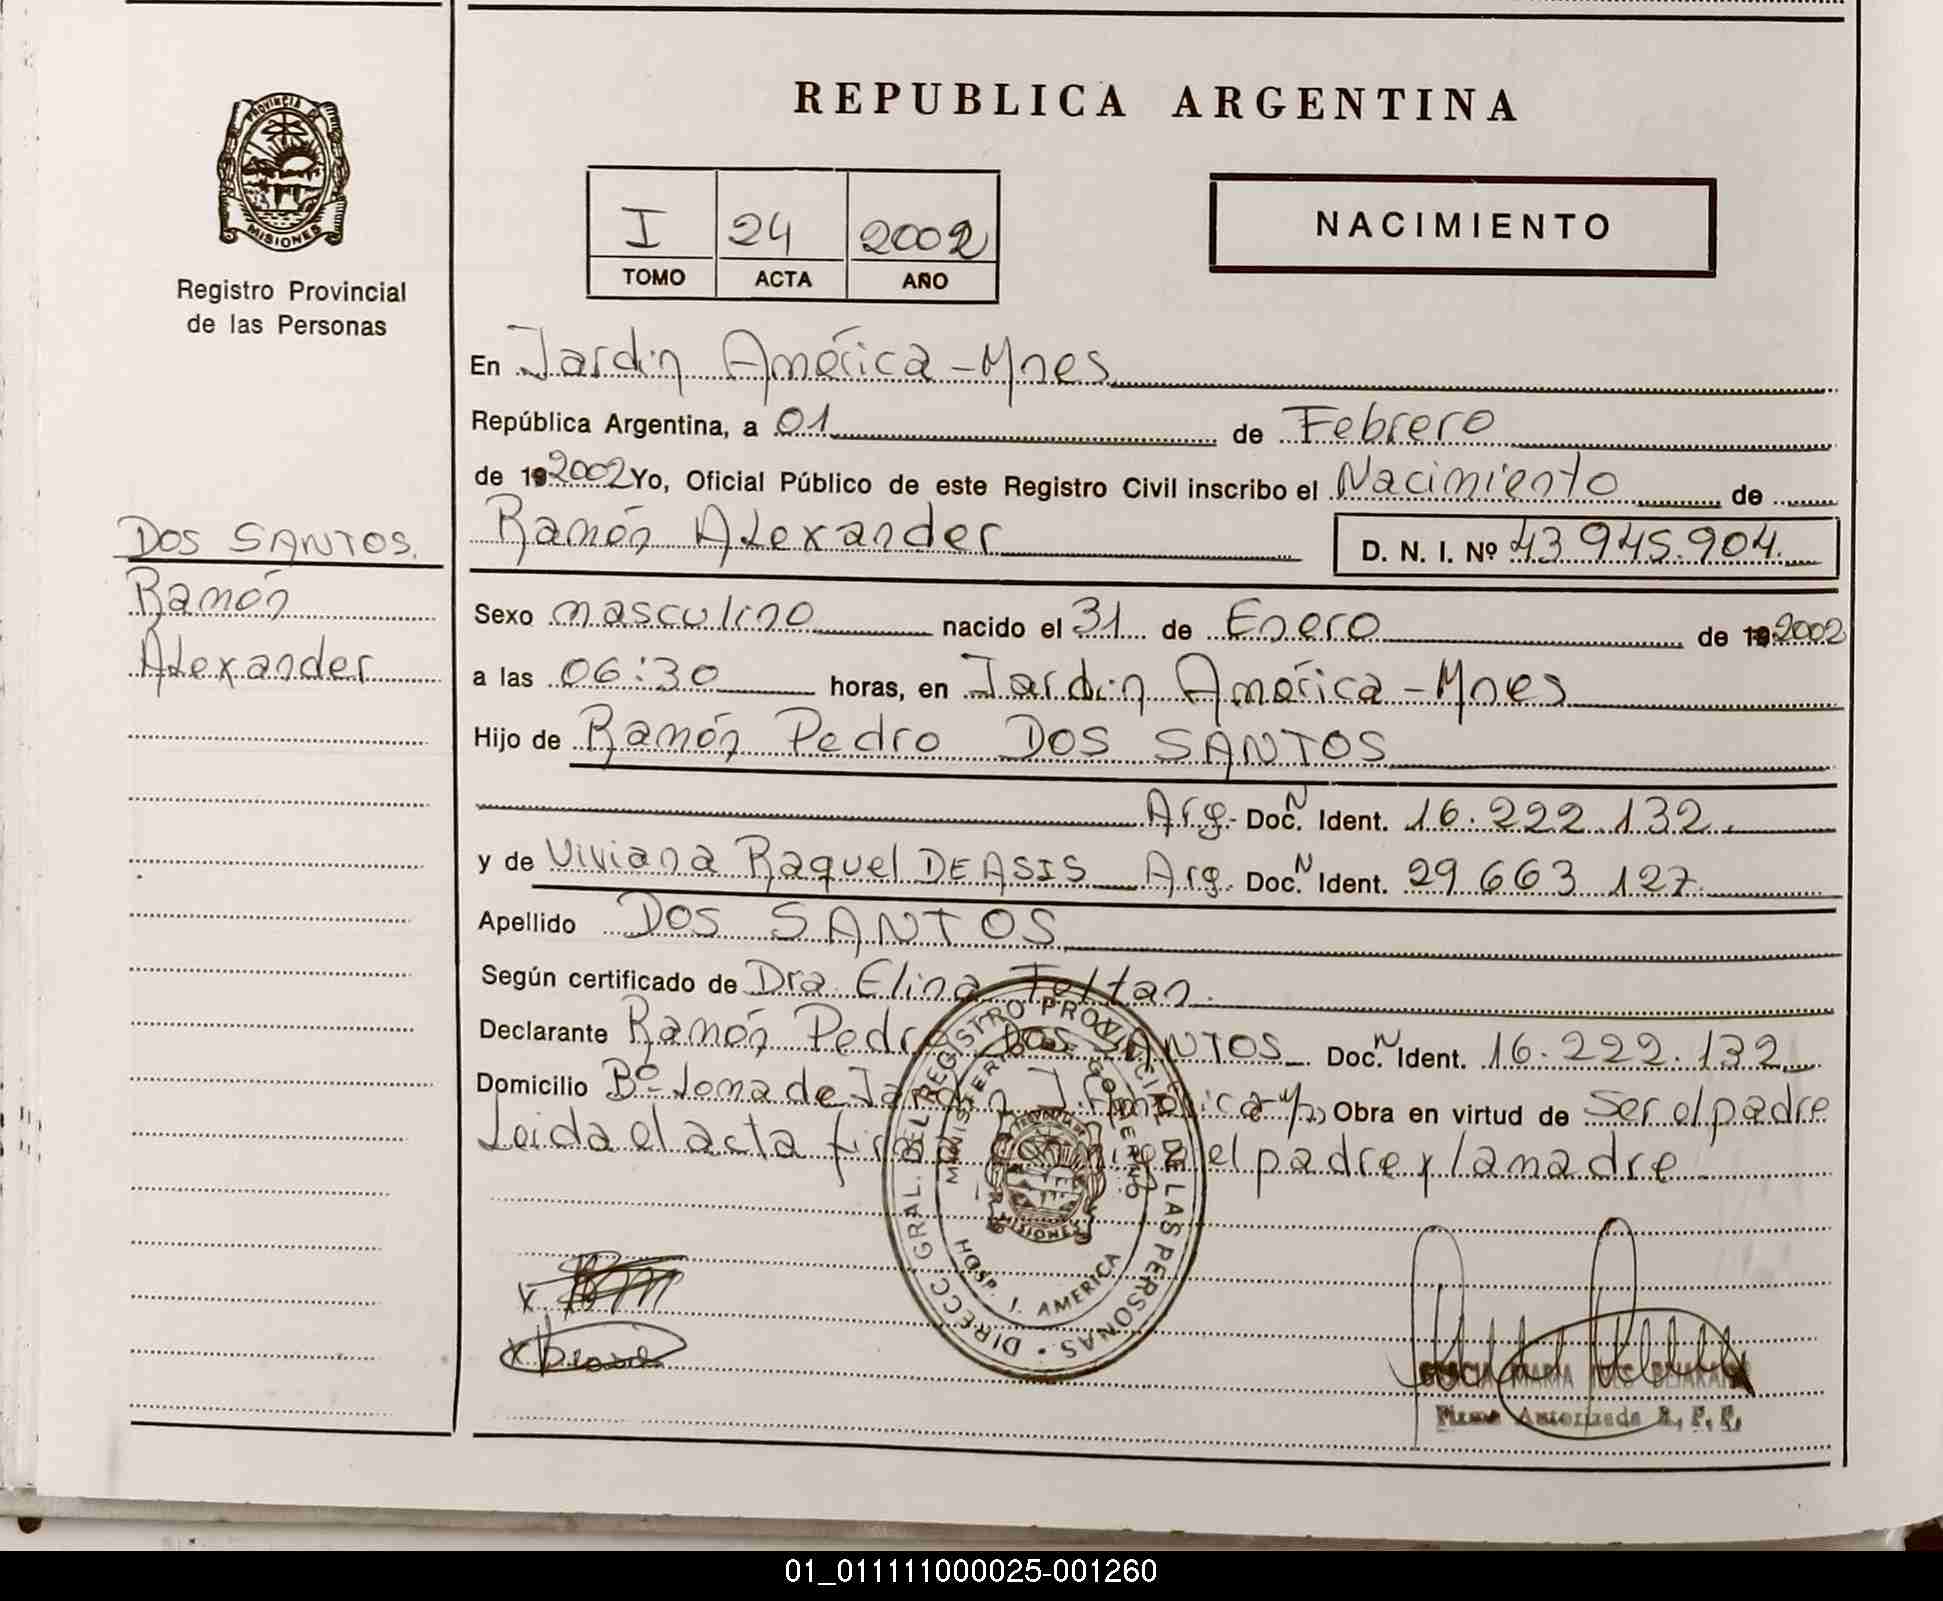 REPUBLICA ARGENTINA
PROVINCIA
MISIONES
Registro Provincial
de las Personas
I 24 2002
TOMO ACTA AÑO
NACIMIENTO
En Jardin América - Mnes
República Argentina, a 01 de Febrero
de 19 2002 Yo, Oficial Público de este Registro Civil inscribo el Nacimiento de
Ramón Alexander D. N. I. Nº 43 945.904.
DOS SANTOS.
Ramón
Alexander
Sexo masculino nacido el 31 de Enero de 19 2002
a las 06:30 horas, en Jardin América - Mnes
Hijo de Ramón Pedro DOS SANTOS
Arg. Doc. N Ident. 16.222.132.
y de Viviana Raquel DE ASIS Arg. Doc. N Ident. 29 663 127
Apellido DOS SANTOS
Según certificado de Dra. Elina
Declarante Ramón Pedro DOS SANTOS Doc. N Ident. 16.222.132
Domicilio Bº Loma de Jardin J. América Obra en virtud de Ser el padre
Leida el acta el padre y la madre
DIRECC. GRAL. DEL REGISTRO PROVINCIAL DE LAS PERSONAS
MINISTERIO GOBIERNO
MISIONES
HOSP. J. AMERICA
MARIA
Firma Autorizada R. P. P.
01_011111000025-001260